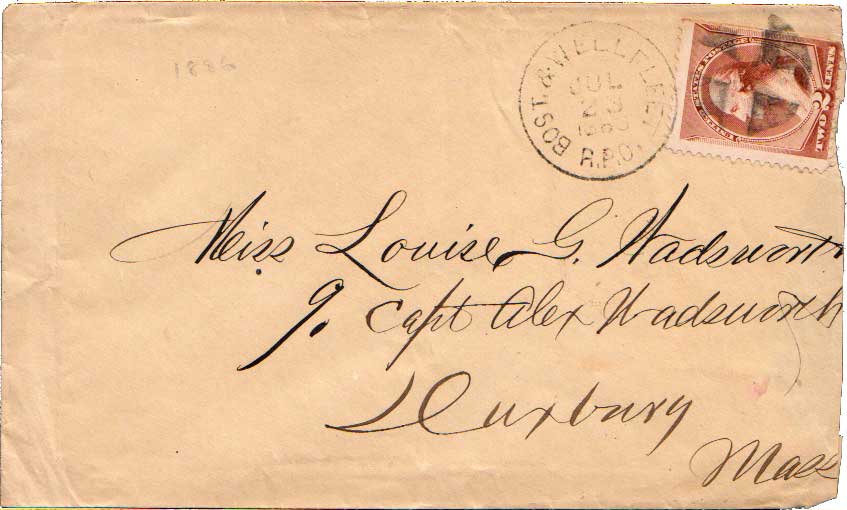 1886
BOST. & WELLFLEET
JUL
23
R.P.O.
UNITED STATES POSTAGE
TWO
Miss Louise G. Wadsworth
9. Capt Alex Wadsworth
Duxbury
Mass